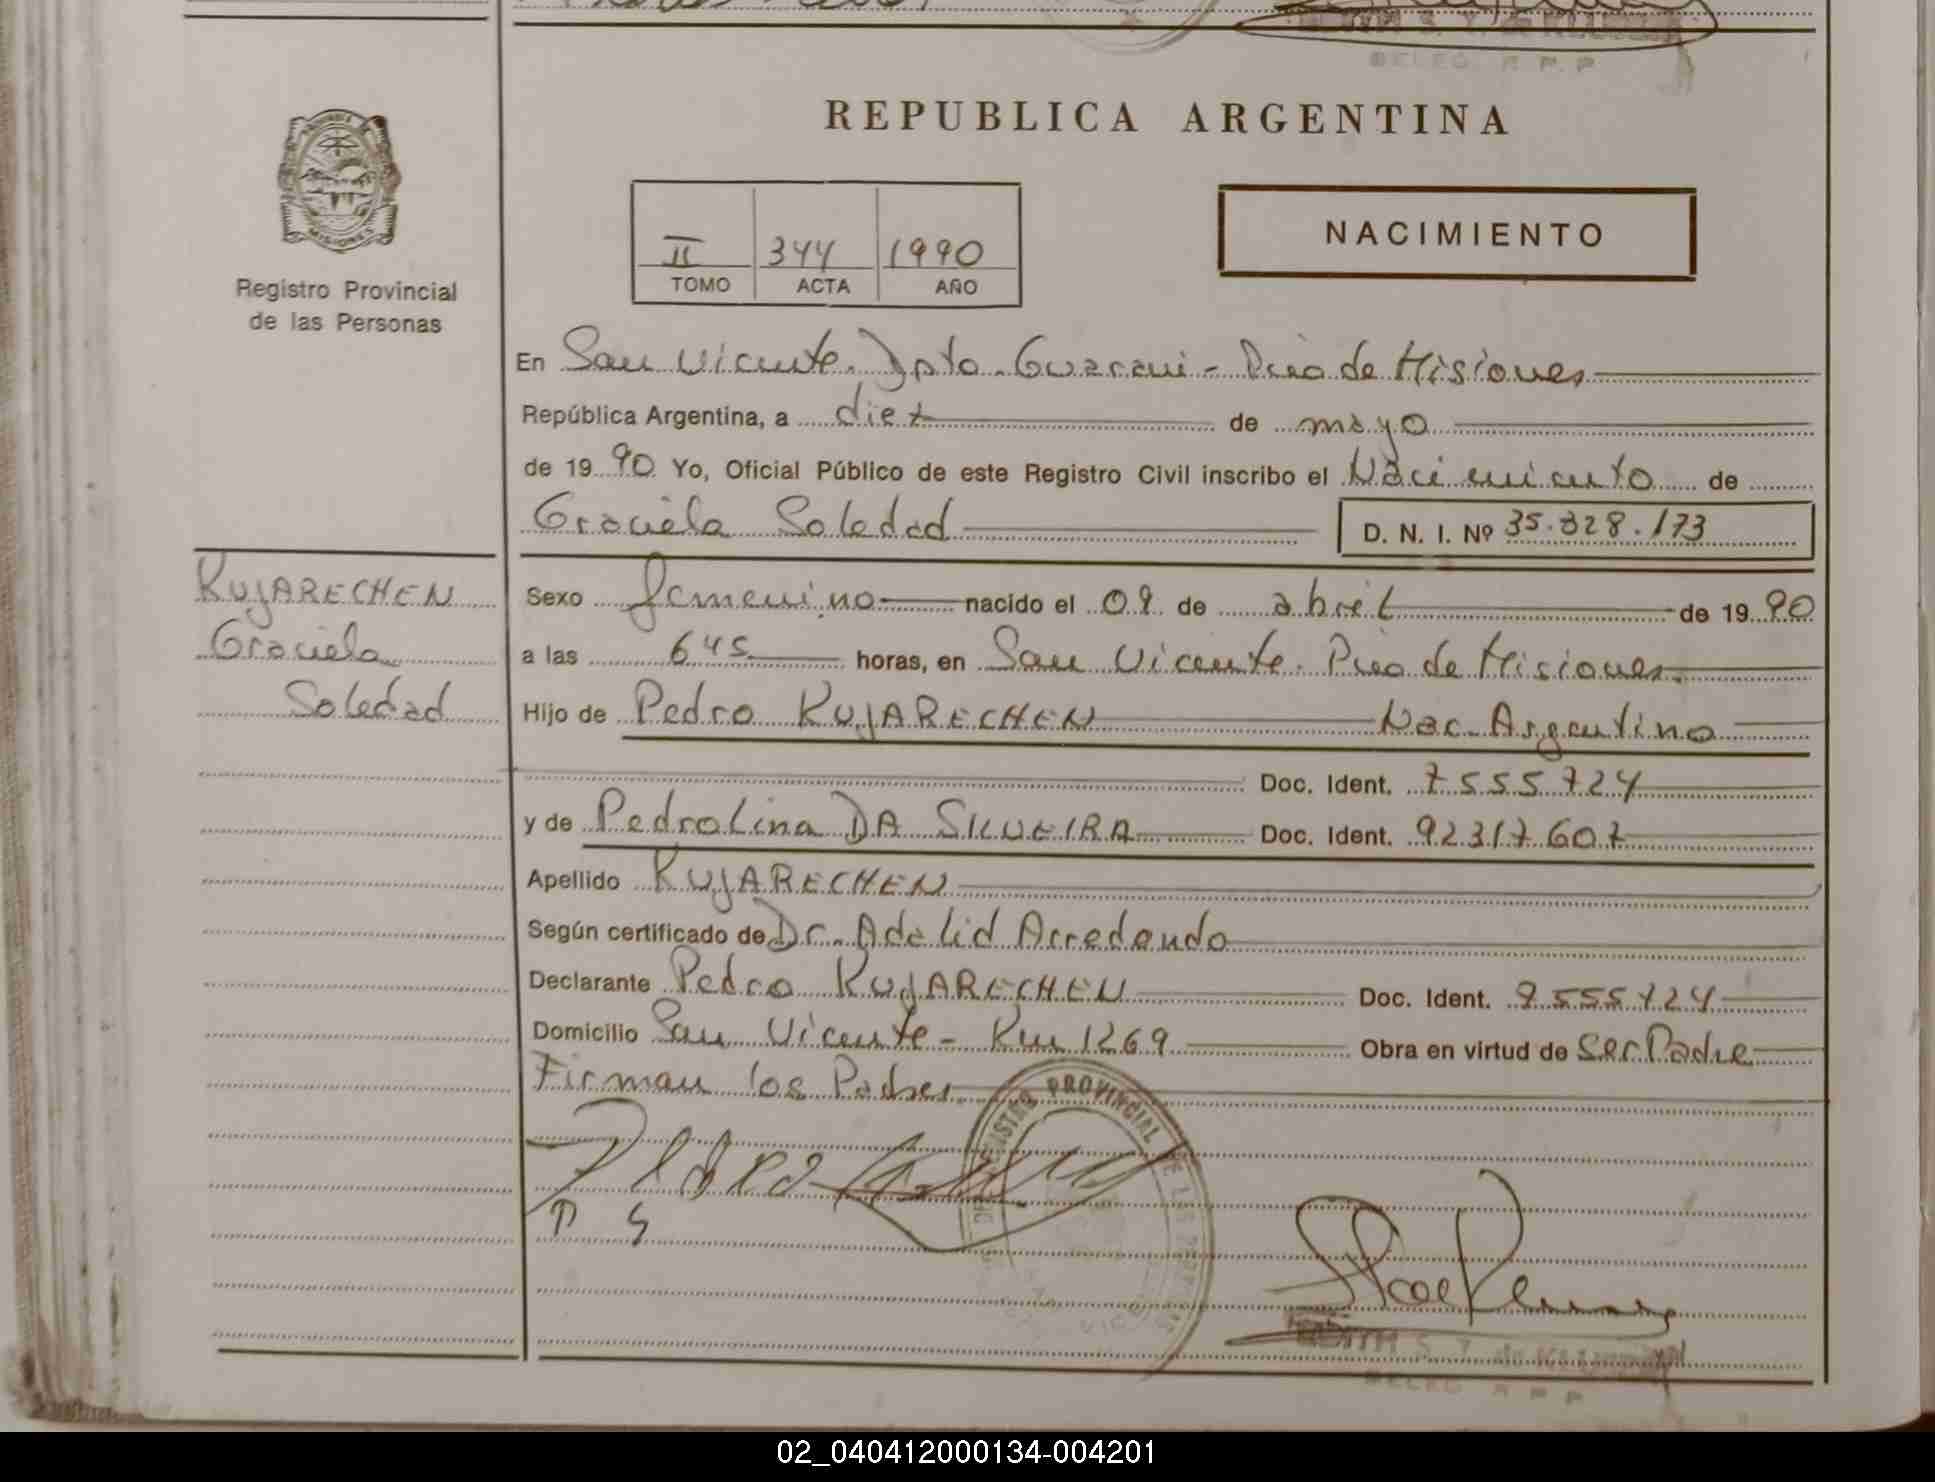 REPUBLICA ARGENTINA
MISIONES
Registro Provincial
de las Personas
II 344 1990
TOMO ACTA AÑO
NACIMIENTO
En San Vicente. Dpto. Guarani - Pcia de Misiones
República Argentina, a diez de mayo
de 1990 Yo, Oficial Público de este Registro Civil inscribo el Nacimiento de
Graciela Soledad D. N. I. Nº 35.328.173
KUJARECHEN
Graciela
Soledad
Sexo femenino nacido el 09 de abril de 1990
a las 645 horas, en San Vicente. Pcia de Misiones.
Hijo de Pedro KUJARECHEN Nac. Argentino
Doc. Ident. 7555724
y de Pedrolina DA SILVEIRA Doc. Ident. 92317607
Apellido KUJARECHEN
Según certificado de Dr. Adalid Arredondo
Declarante Pedro KUJARECHEN Doc. Ident. 7555724
Domicilio San Vicente - Km 1269 Obra en virtud de ser Padre
Firman los Padres
REGISTRO PROVINCIAL DE LAS
P S
EDITH S. T. de
DELEG. R P P
02_040412000134-004201